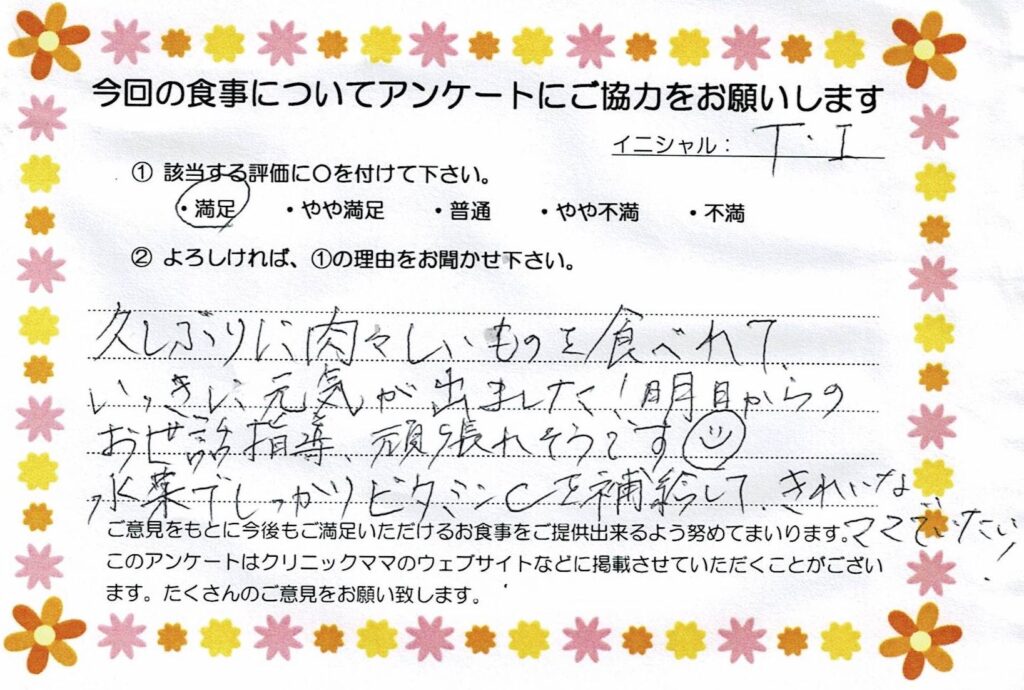 今回の食事についてアンケートにご協力をお願いします
イニシャル： T・I
① 該当する評価に〇を付けて下さい。
・満足 ・やや満足 ・普通 ・やや不満 ・不満
② よろしければ、①の理由をお聞かせ下さい。
久しぶりに肉々しいものを食べれて
いっきに元気が出ました！明日からの
お世話指導、頑張れそうです
水菜でしっかりビタミンCを補給して、きれいな
ママでいたい
ご意見をもとに今後もご満足いただけるお食事をご提供出来るよう努めてまいります。
このアンケートはクリニックママのウェブサイトなどに掲載させていただくことがござい
ます。たくさんのご意見をお願い致します。